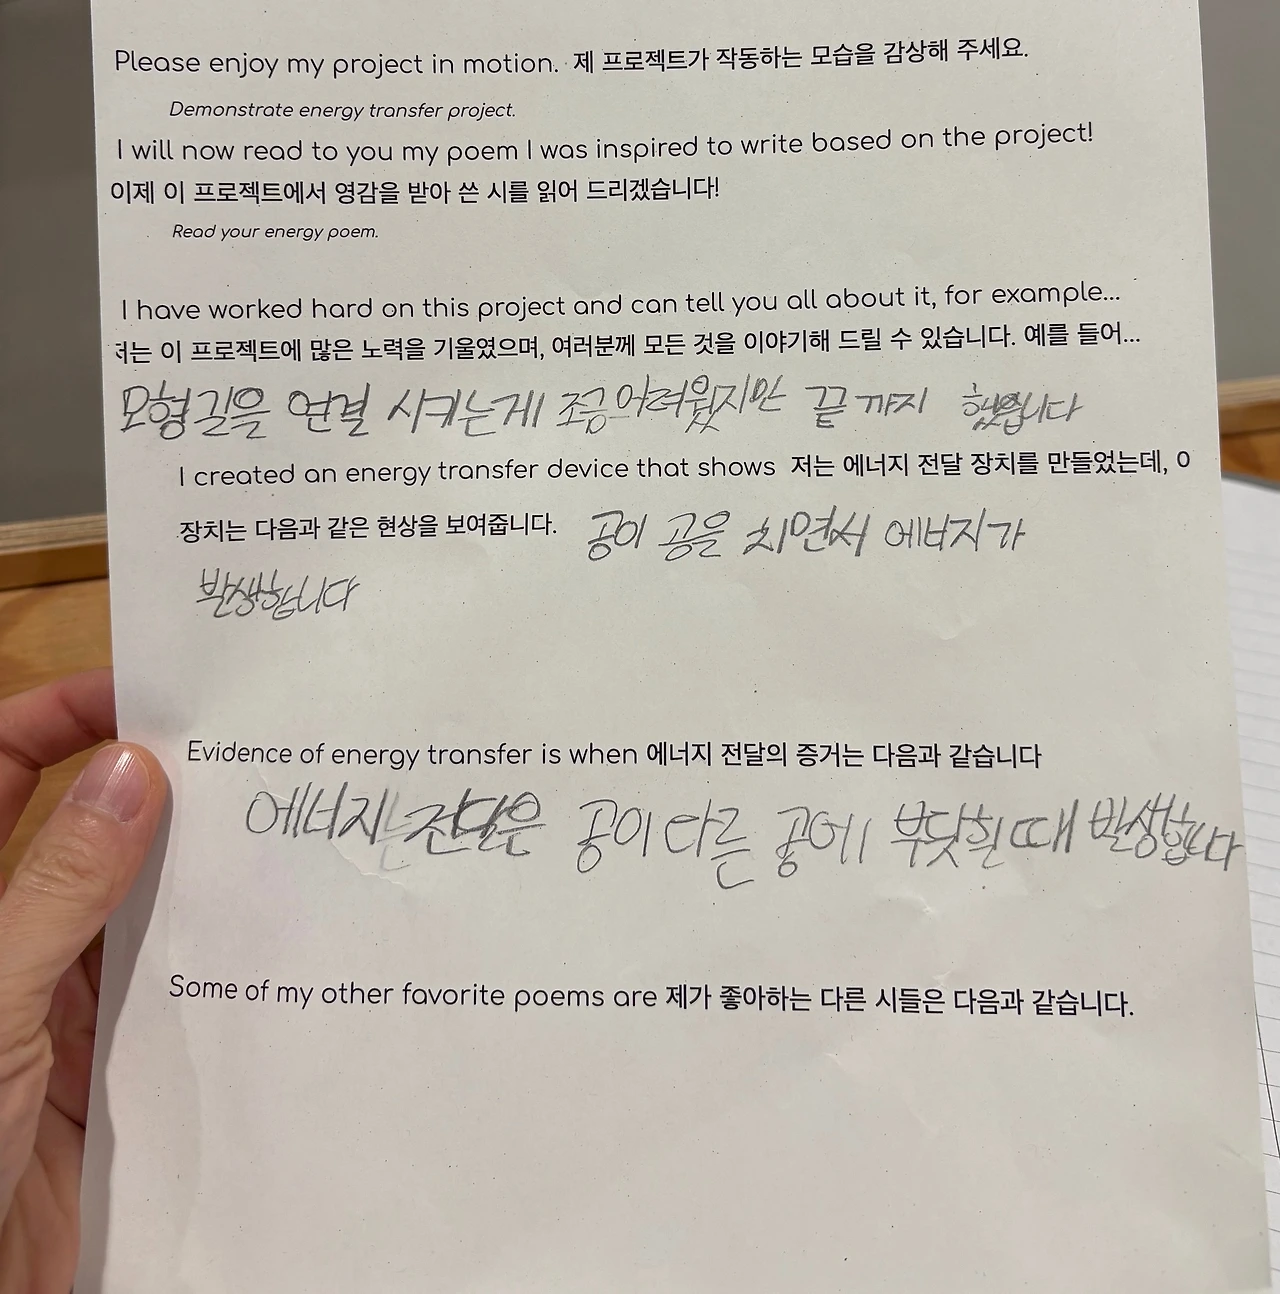 Please enjoy my project in motion. 제 프로젝트가 작동하는 모습을 감상해 주세요.
Demonstrate energy transfer project.
I will now read to you my poem I was inspired to write based on the project!
이제 이 프로젝트에서 영감을 받아 쓴 시를 읽어 드리겠습니다!
Read your energy poem.
I have worked hard on this project and can tell you all about it, for example...
저는 이 프로젝트에 많은 노력을 기울였으며, 여러분께 모든 것을 이야기해 드릴 수 있습니다. 예를 들어...
모형길을 연결 시키는게 조금 어려웠지만 끝 까지 했습니다
I created an energy transfer device that shows 저는 에너지 전달 장치를 만들었는데, 이
장치는 다음과 같은 현상을 보여줍니다. 공이 공을 치면서 에너지가
발생합니다
Evidence of energy transfer is when 에너지 전달의 증거는 다음과 같습니다
에너지 전달은 공이 다른 공에 부닷힐 때 발생합니다
Some of my other favorite poems are 제가 좋아하는 다른 시들은 다음과 같습니다.